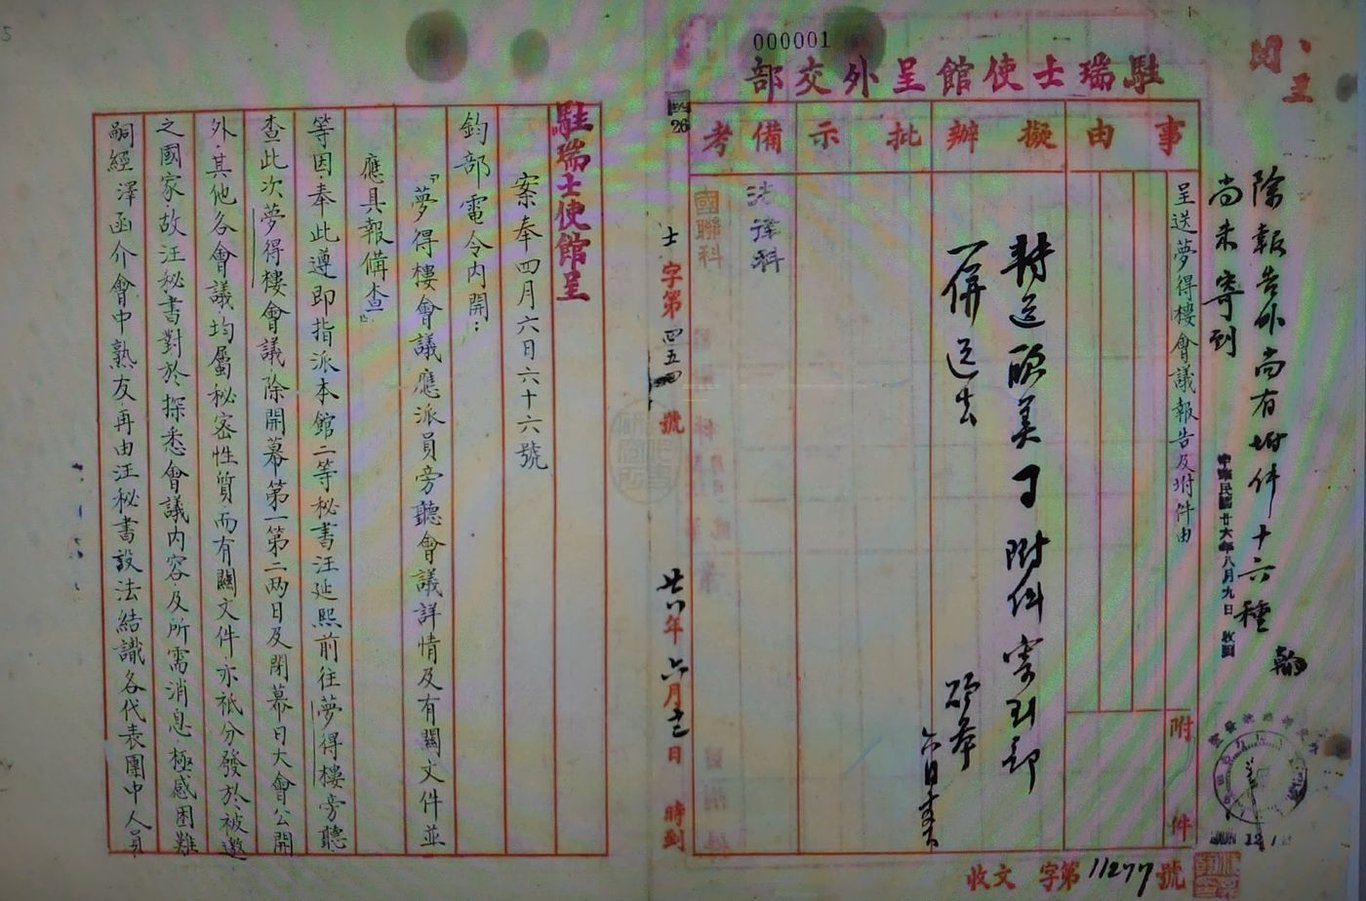 000001
駐瑞士使館呈外交部
閱
呈
除報告外尚有附件十六種
尚未寄到
中華民國廿六年八月九日 收到
事由
呈送夢得樓會議報告及附件由
附件
擬辦
附件寄到部
一併送去
批示
備考
法律科
國聯科
士字第四五四號
廿六年六月十二日 時到
收文 字第11277號
26
駐瑞士使館呈
案奉四月六日六十六號
鈞部電令內開：
『夢得樓會議應派員旁聽會議詳情及有關文件並
應具報備查』
等因奉此遵即指派本館二等秘書汪延熙前往夢得樓旁聽
查此次夢得樓會議除開幕第一第二兩日及閉幕日大會公開
外其他各會議均屬秘密性質而有關文件亦祇分發於被邀
之國家故汪秘書對於探悉會議內容及所需消息極感困難
嗣經澤函介會中熟友再由汪秘書設法結識各代表團中人員